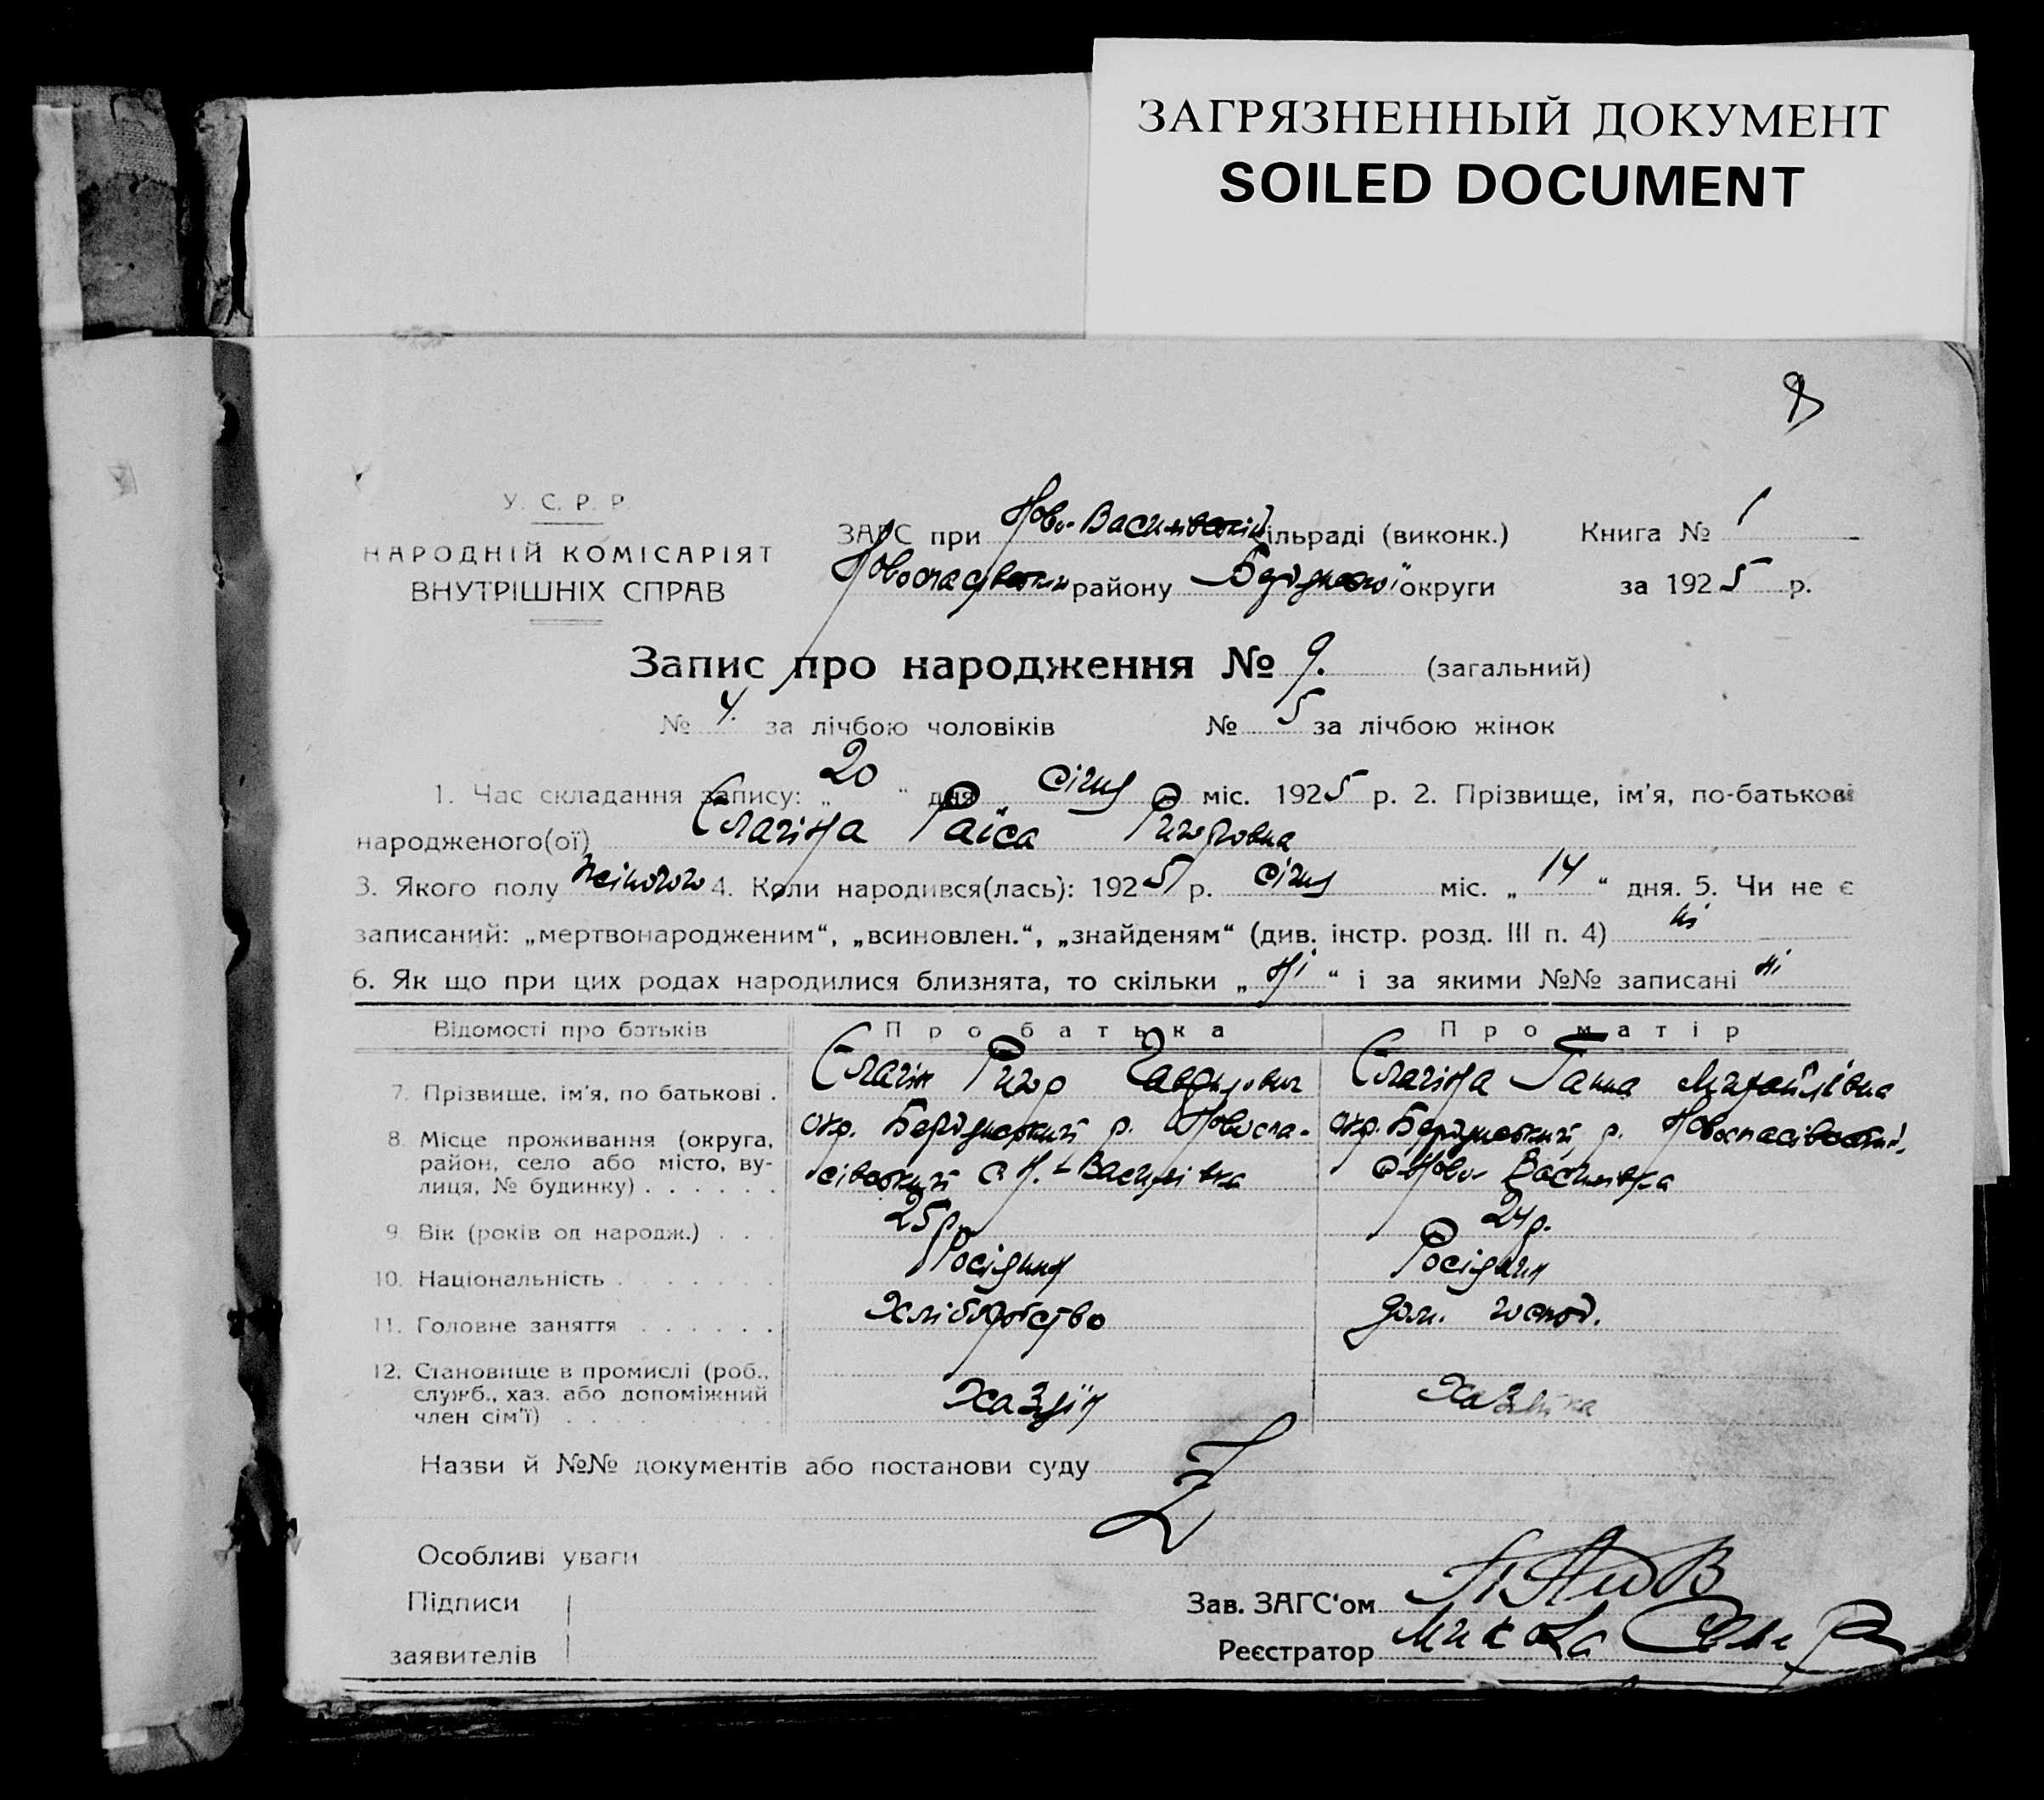 ЗАГРЯЗНЕННЫЙ ДОКУМЕНТ
SOILED DOCUMENT
У. С. Р. Р.
НАРОДНІЙ КОМІСАРІЯТ
ВНУТРІШНІХ СПРАВ
ЗАГС при Ново-Василівській сільраді (виконк.) Книга № 1
району округи за 1925 р.
Запис про народження № 9. (загальний)
№ 4. за лічбою чоловіків № 5 за лічбою жінок
1. Час складання запису: „ 20 “ дня січня міс. 1925 р. 2. Прізвище, ім'я, по-батькові
народженого(ої) Єлагіна Раїса
3. Якого полу жіночого 4. Коли народився(лась): 1925 р. січня міс. „ 14 “ дня. 5. Чи не є
записаний: „мертвонародженим“, „всиновлен.“, „знайденям“ (див. інстр. розд. III п. 4) ні
6. Як що при цих родах народилися близнята, то скільки „ Ні “ і за якими №№ записані ні
Відомості про батьків Про батька Про матір
7. Прізвище, ім'я, по батькові . Єлагін Єлагіна Ганна Михайлівна
8. Місце проживання (округа, окр. р. Новоспа- окр. р.
район, село або місто, ву- сівський с Н.-Василівка с Ново-Василівка
лиця, № будинку) . . . . . .
9. Вік (років од народж.) . . . 25 р. 24 р.
10. Національність . . . . . . .
11. Головне заняття . . . . . . Хліборобство дом. госпо.
12. Становище в промислі (роб.,
служб., хаз. або допоміжний Хазяїн Хазяйка
член сім'ї) . . . . . . . .
Назви й №№ документів або постанови суду
Особливі уваги
Підписи Зав. ЗАГС'ом
заявителів Реєстратор Микола